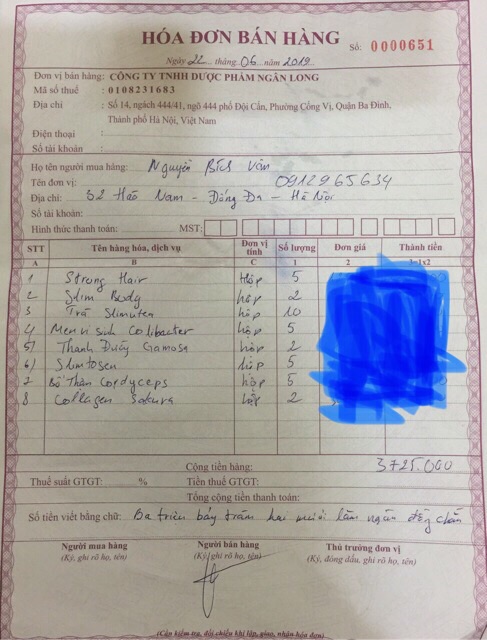 HÓA ĐƠN BÁN HÀNG
Số: 0000651
Ngày 22 tháng 06 năm 2019
Đơn vị bán hàng: CÔNG TY TNHH DƯỢC PHẨM NGÂN LONG
Mã số thuế : 0108231683
Địa chỉ : Số 14, ngách 444/41, ngõ 444 phố Đội Cấn, Phường Cống Vị, Quận Ba Đình,
Thành phố Hà Nội, Việt Nam
Điện thoại :
Số tài khoản :
Họ tên người mua hàng: Nguyễn Bích Vân
Tên đơn vị: 0912965634
Địa chỉ: 32 Hào Nam - Đống Đa - Hà Nội
Số tài khoản:
Hình thức thanh toán: MST:
STT Tên hàng hóa, dịch vụ Đơn vị tính Số lượng Đơn giá Thành tiền
A B C 1 2 3=1x2
1 Strong Hair hộp 5
2 Slim Body hộp 2
3 Trà Slimuten hộp 10
4/ Men vi sinh Colibacter hộp 5
5/ Thanh Đường Gamosa hộp 2
6/ Slimtosen hộp 5
7 Bổ Thận Cordyceps hộp 5
8 Collagen Sakura hộp 2
Cộng tiền hàng: 3725.000
Thuế suất GTGT: % Tiền thuế GTGT:
Tổng cộng tiền thanh toán:
Số tiền viết bằng chữ: Ba triệu bảy trăm hai mươi lăm ngàn đồng chẵn
Người mua hàng Người bán hàng Thủ trưởng đơn vị
(Ký, ghi rõ họ, tên) (Ký, ghi rõ họ, tên) (Ký, đóng dấu, ghi rõ họ, tên)
(Cần kiểm tra, đối chiếu khi lập, giao, nhận hóa đơn)